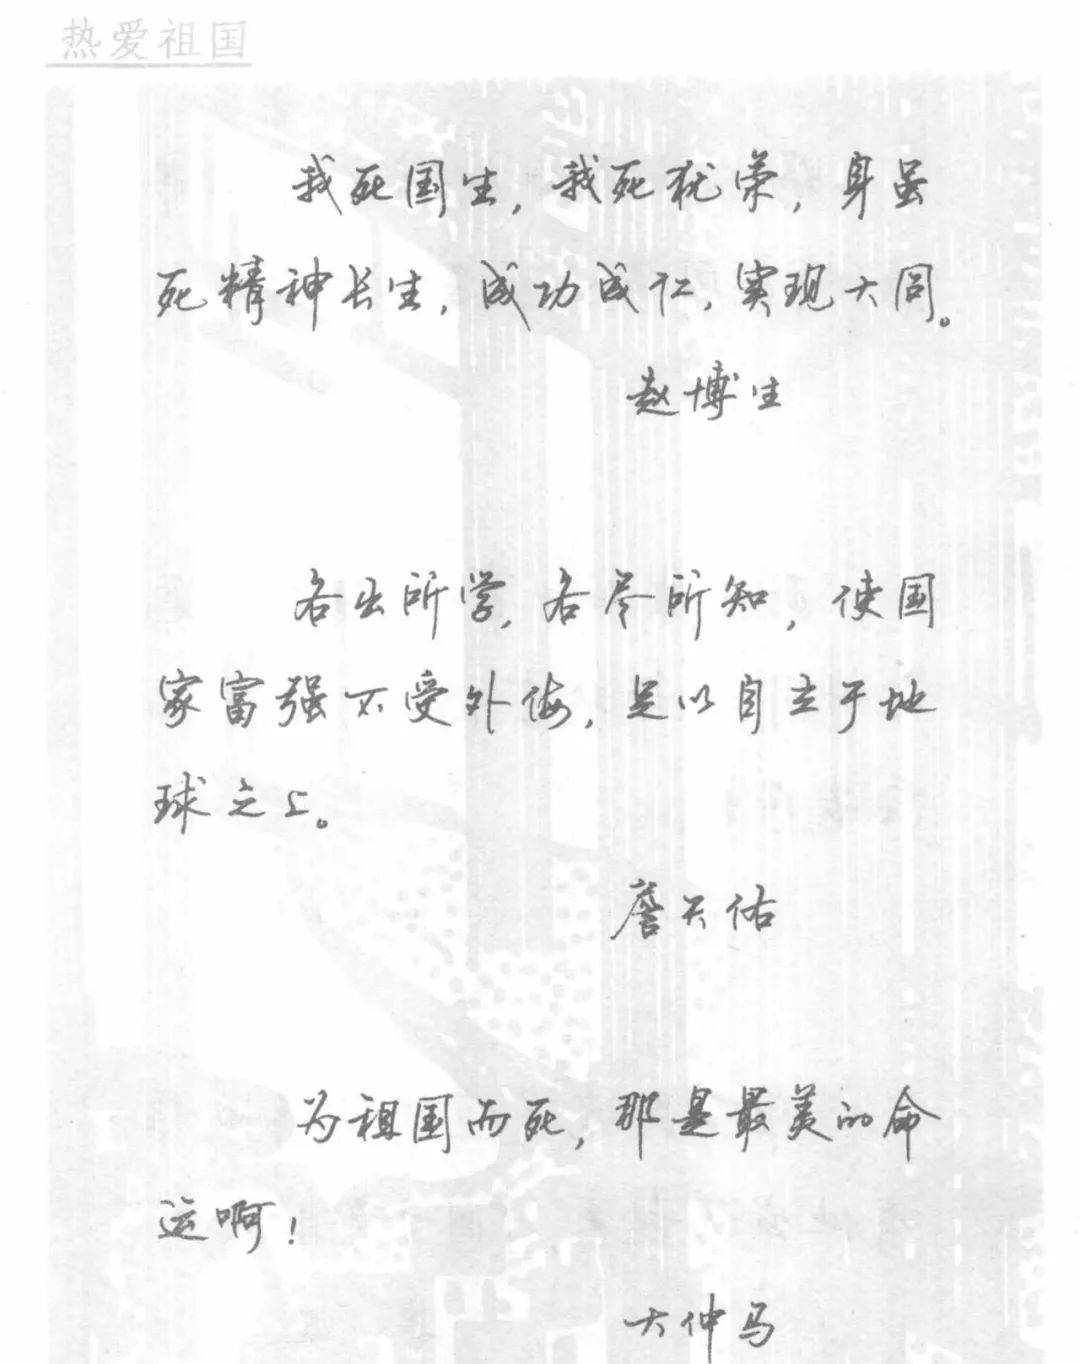 热爱祖国
我死国生，我死犹荣，身虽
死精神长生，成功成仁，实现大同。
赵博生
各出所学，各尽所知，使国
家富强不受外侮，足以自立于地
球之上。
詹天佑
为祖国而死，那是最美的命
运啊！
大仲马